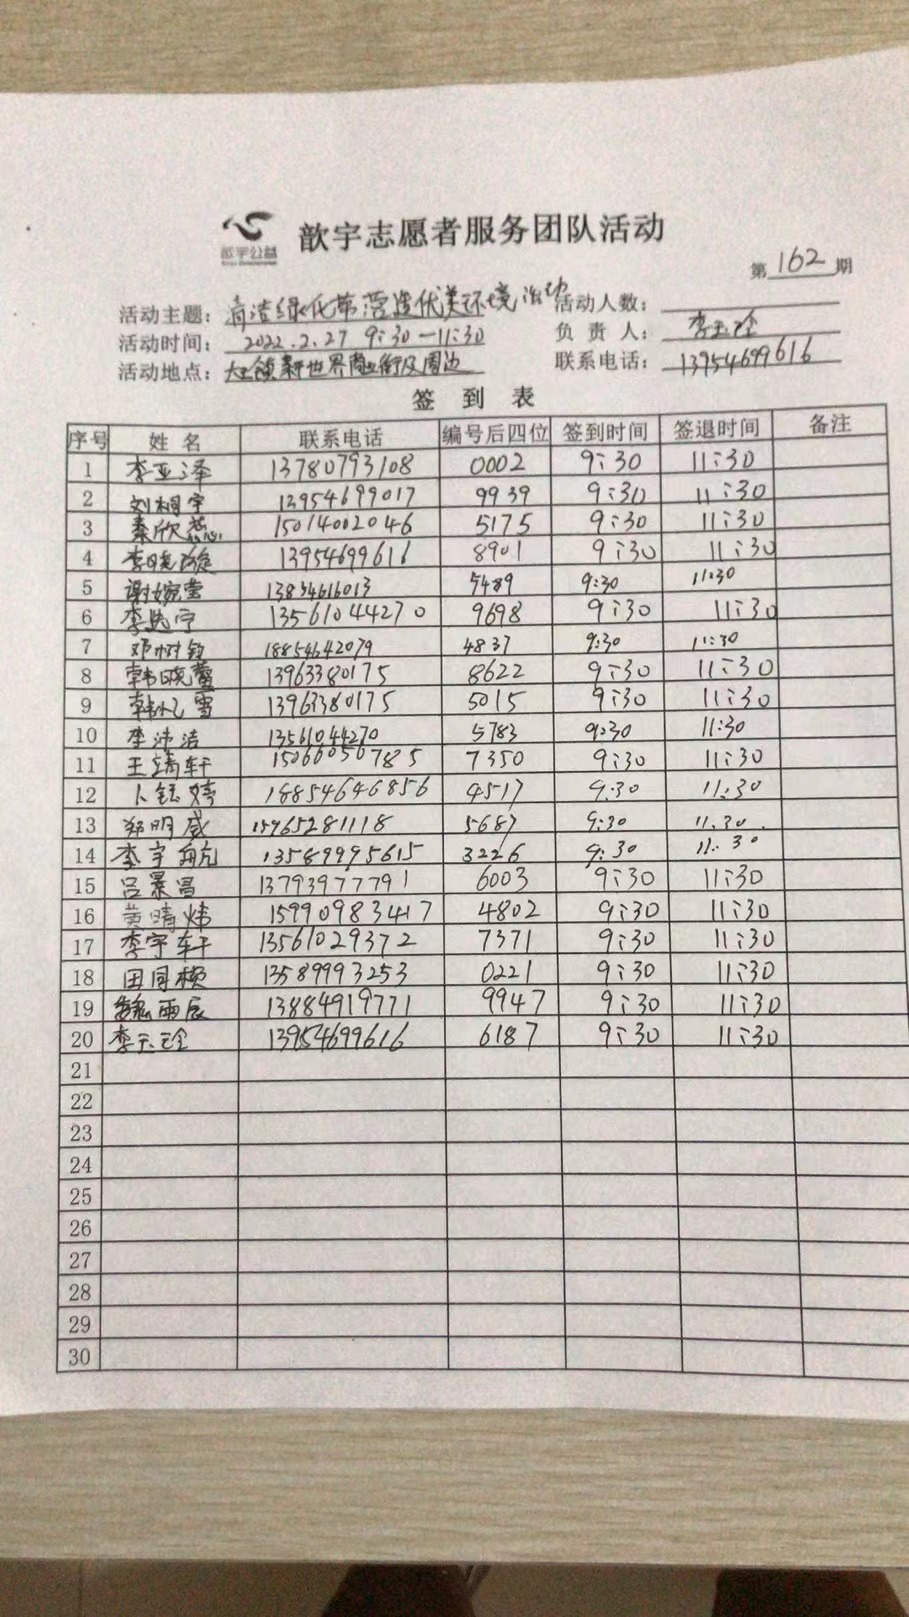 歆宇公益
歆宇志愿者服务团队活动
第 162 期
活动主题: 清洁绿化带营造优美环境活动 活动人数:
活动时间: 2022.2.27 9:30—11:30 负责人:
活动地点: 大王镇新世界商业街及周边 联系电话: 13954699616
签到表
序号 姓名 联系电话 编号后四位 签到时间 签退时间 备注
1 李亚泽 13780793108 0002 9:30 11:30
2 刘桐宇 13954699017 9939 9:30 11:30
3 秦欣慈 15014002046 5175 9:30 11:30
4 13954699616 8901 9:30 11:30
5 谢婉莹 5489 9:30 11:30
6 13561044270 9698 9:30 11:30
7 邓树钰 18854642079 4837 9:30 11:30
8 韩晓萱 13963380175 8622 9:30 11:30
9 13963380175 5015 9:30 11:30
10 李沛洁 13561044270 5783 9:30 11:30
11 王靖轩 15066050785 7350 9:30 11:30
12 卜钰婷 18854646856 4517 9:30 11:30
13 郑明威 15965281118 5687 9:30 11:30
14 李宇航 13589995615 3226 9:30 11:30
15 吕景昌 13793977791 6003 9:30 11:30
16 黄晴炜 15990983417 4802 9:30 11:30
17 李宇轩 13561029372 7371 9:30 11:30
18 田同桢 13589993253 0221 9:30 11:30
19 魏雨辰 13884919771 9947 9:30 11:30
20 李天玲 13954699616 6187 9:30 11:30
21
22
23
24
25
26
27
28
29
30